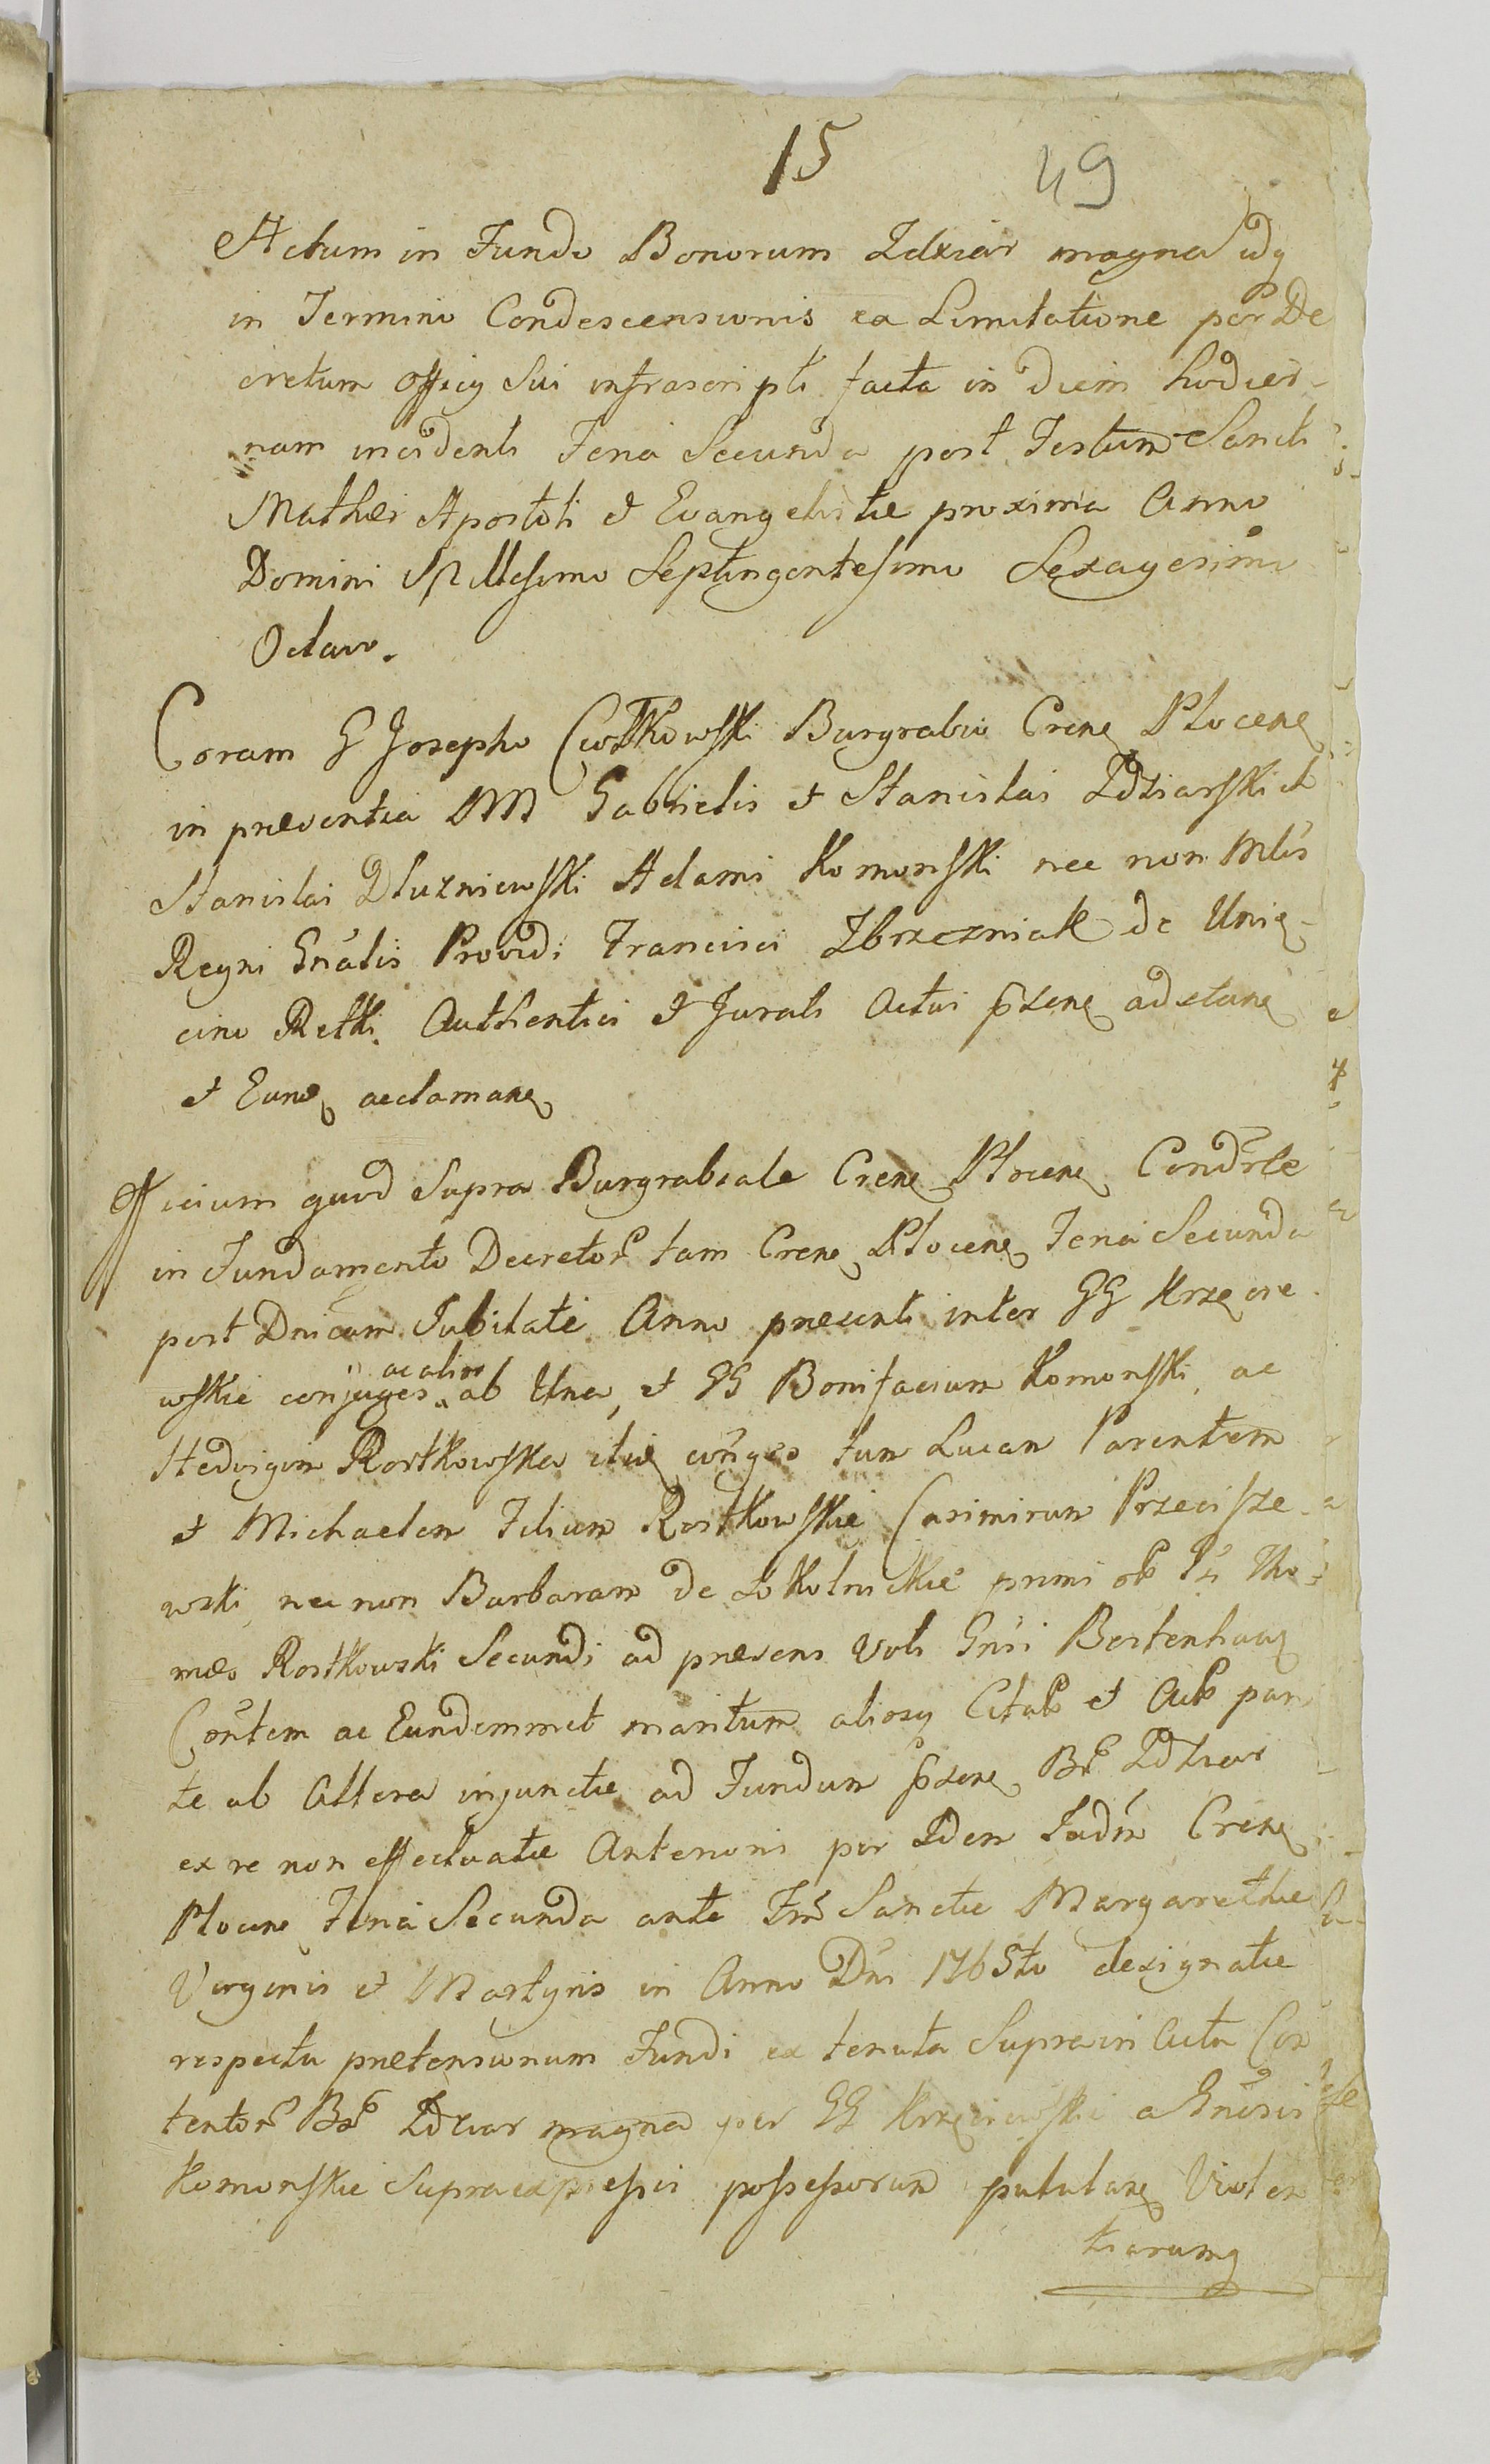 15 49
Actum in Fundo Bonorum Zdziar magna idq
in Termino Condescensionis ex Limitatione per De
cretum officij Sui infrascripti facta in diem hodier-
nam incidenti Feria Secunda post Festum Sancti
Mathei Apostoli et Evangelistæ proxima Anno
Domini Millesimo Septingentesimo Sexagesimo
Octavo.
Coram G Josepho Ciołkowski Burgrabio Crens Plocens
in præsentia MM Gabrielis et Stanislai Zdziarskich
Stanislai Dłuzniewski Adami Komorski nec non Mlis
Regni Gnalis Providi Francisci Zbrzezniak de Unie-
cino Retki Authentici et Jurati Actui pszens adstans
et Eund acclamans
Officium quod Supra Burgrabiale Crens Plocens Condrle
in Fundamento Decretor tam Crens Plocens Feria Secunda
post Dnicam Jubilate Anno præsenti inter GG Krzecie
wskie conjuges ac alios ab Una, et GG Bonifacium Komorski, ac
Hedvigim Rostkowska itid conges tum Lucam Parentem
et Michaelem Filium Rostkowskie Casimirum Przecisze-
wski, nec non Barbaram de Sokolnickie primi ol Gsi Tho
mæs Rostkowski Secundi ad præsens Voti Gnsi Bestenhauz
Cortem ac Eundemmet maritum aliosq Citat et Act par
te ab Altera injunctæ ad Fundum pszens Br Zdziar
ex re non effectuatæ Anterioris per Idem Judm Crens
Plocens Feria Secunda ante Fm Sanctæ Margarethæ
Virginis et Martyris in Anno Dni 1765to designatæ
respectu prætensionum Fundi ex tenuta Suprain Acta Con
tentor Br Zdziar magna per GG Krzeciewskie a Gnosis
Komorskie Supra expressis possessorum pullulans Violen
tiarumq